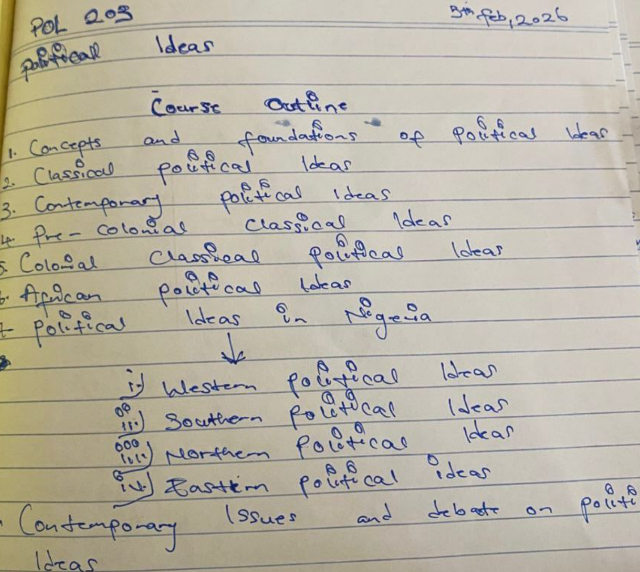 POL 203
5th Feb, 2026
Political Ideas
Course Outline
1. Concepts and foundations of political Ideas
2. Classical political Ideas
3. Contemporary political Ideas
4. Pre-colonial classical Ideas
5. Colonial classical political Ideas
6. African political Ideas
7- Political Ideas in Nigeria
i) Western political Ideas
ii) Southern political Ideas
iii) Northern political Ideas
iv) Eastern political ideas
Contemporary Issues and debate on politi
Ideas